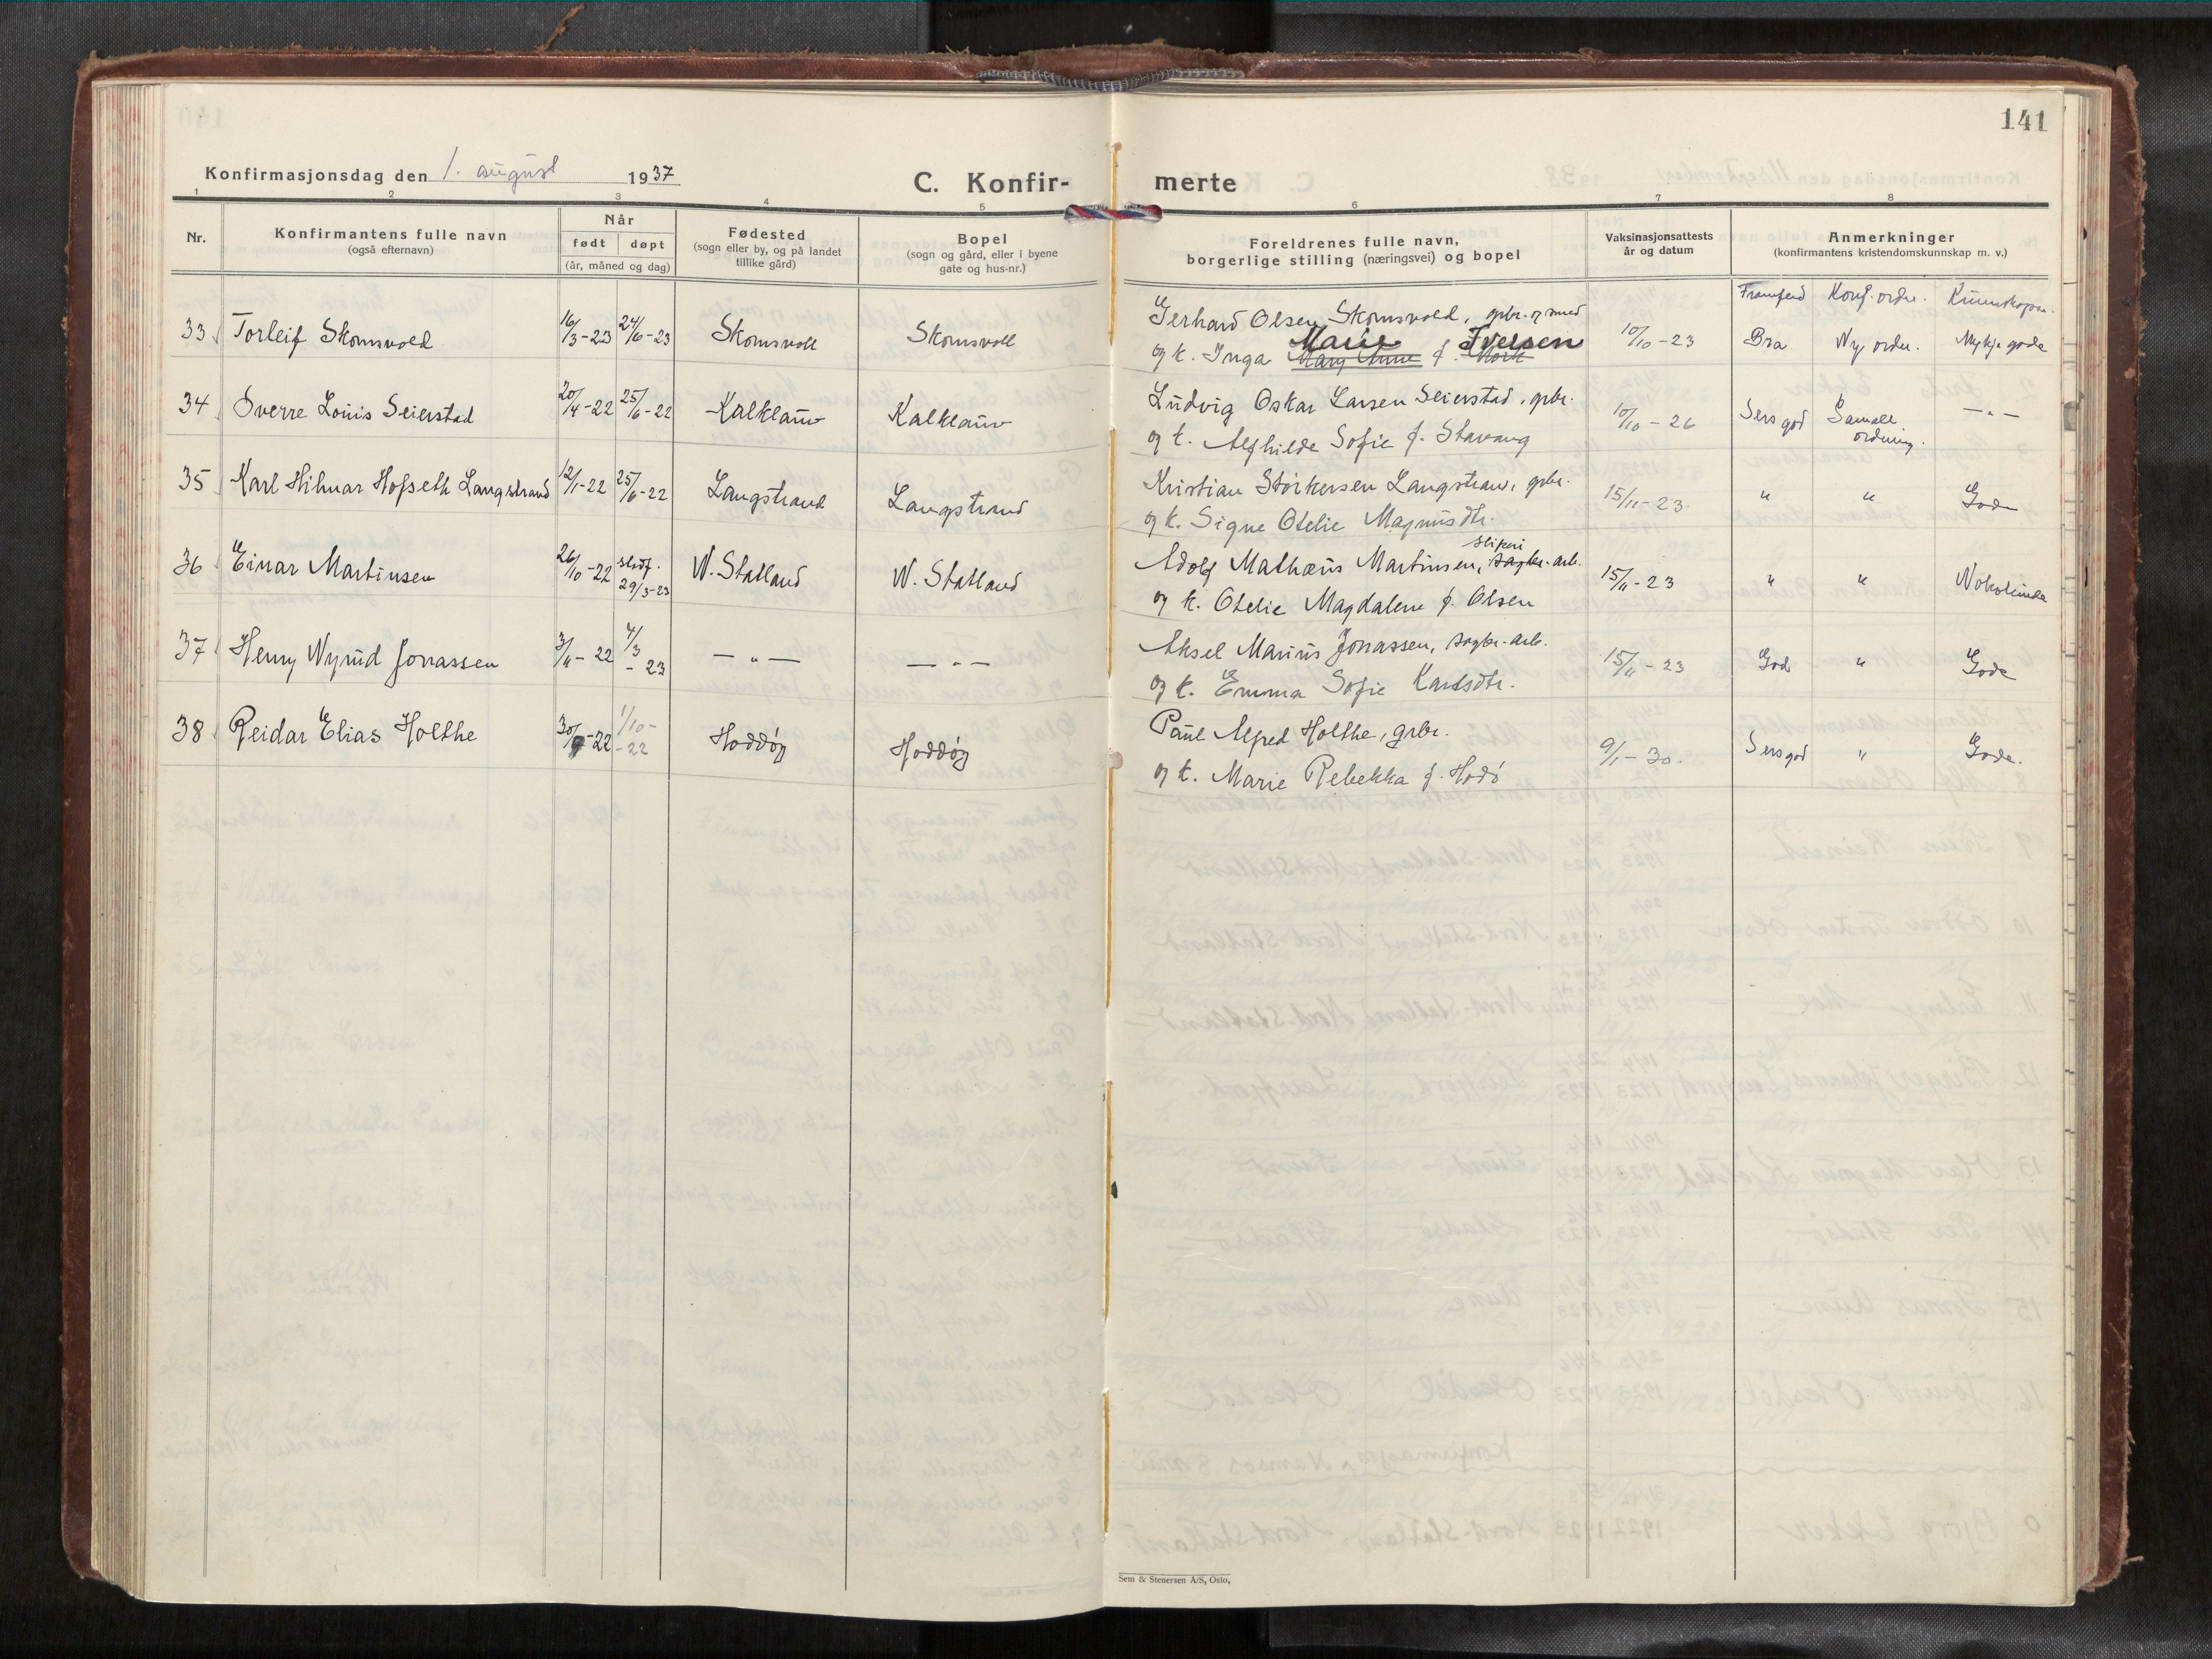 141
Konfirmasjonsdag den 1. august 1937
C. Konfir-
merte
1 2 3 4 5 6 7 8
Nr.
Konfirmantens fulle navn
(også efternavn)
Når
født døpt
(år, måned og dag)
Fødested
(sogn eller by, og på landet
tillike gård)
Bopel
(sogn og gård, eller i byene
gate og hus-nr.)
Foreldrenes fulle navn,
borgerlige stilling (næringsvei) og bopel
Vaksinasjonsattests
år og datum
Anmerkninger
(konfirmantens kristendomskunnskap m. v.)
Framferd Konf. ordn. Kunnskapar.
33 Torleif Skomsvold 16/3-23 24/6-23 Skomsvoll Skomsvoll
Gerhard Olsen Skomsvold, grbr. og smed
og k. Inga Mary Anne Marie f. Mork Iversen
10/10-23 Bra Ny ordn. Mykje gode
34 Sverre Louis Seierstad 20/4-22 25/6-22 Kalklauv Kalklauv
Ludvig Oskar Larsen Seierstad, grbr.
og k. Alfhilde Sofie f. Stavang
10/10-26 Sers god Samall ordning. — „ —
35 Karl Hilmar Hofseth Langstrand 12/1-22 25/6-22 Langstrand Langstrand
Kristian Størkersen Langstran, grbr.
og k. Signe Otelie Magnusdtr.
15/11-23 „ „ Gode
36 Einar Martinsen 26/10-22 29/3-23 N. Statland N. Statland
Adolf Mathæus Martinsen, sliperi sagbr.-arb.
og k. Otelie Magdalene f. Olsen
15/11-23 „ „ Nokolunde
37 Henry Nyrud Jonassen 3/11-22 4/3-23 — „ — — „ —
Aksel Marius Jonassen, sagbr.-arb.
og k. Emma Sofie Karlsdtr.
15/11-23 God „ Gode
38 Reidar Elias Holthe 30/ -22 1/10-22 Hoddøy Hoddøy
Paul Alfred Holthe, grbr.
og k. Marie Rebekka f. Hodø
9/1-30. Sers god „ Gode.
Sem & Stenersen A/S, Oslo,